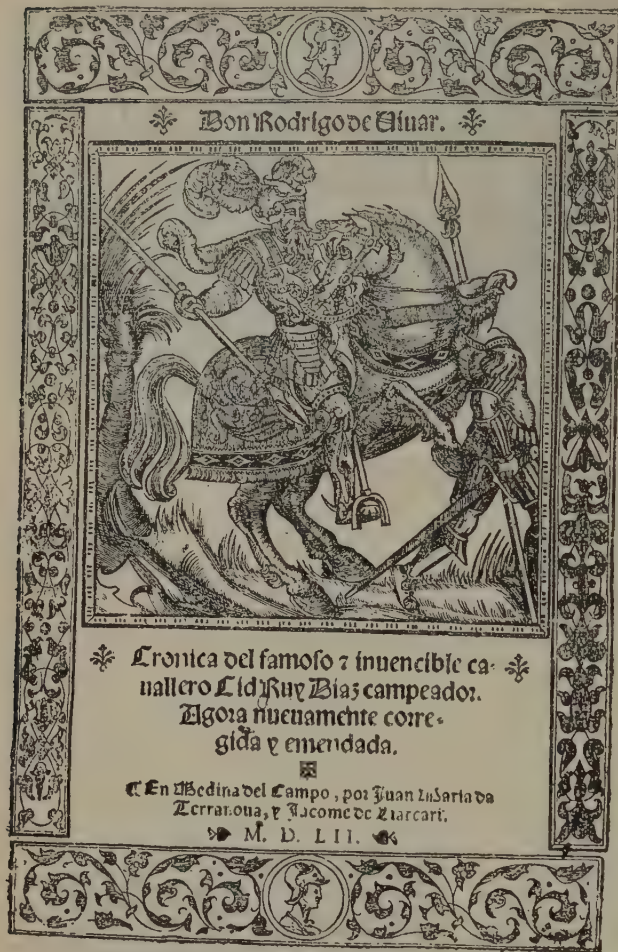 Don Rodrigo de Uiuar.
Cronica del famoso ⁊ inuencible ca-
uallero Cid Ruy Diaz campeador.
Agora nueuamente corre-
gida y emendada.
¶ En Medina del Campo, por Juan Maria da
Terranoua, y Jacome de Liarcari.
M. D. LII.